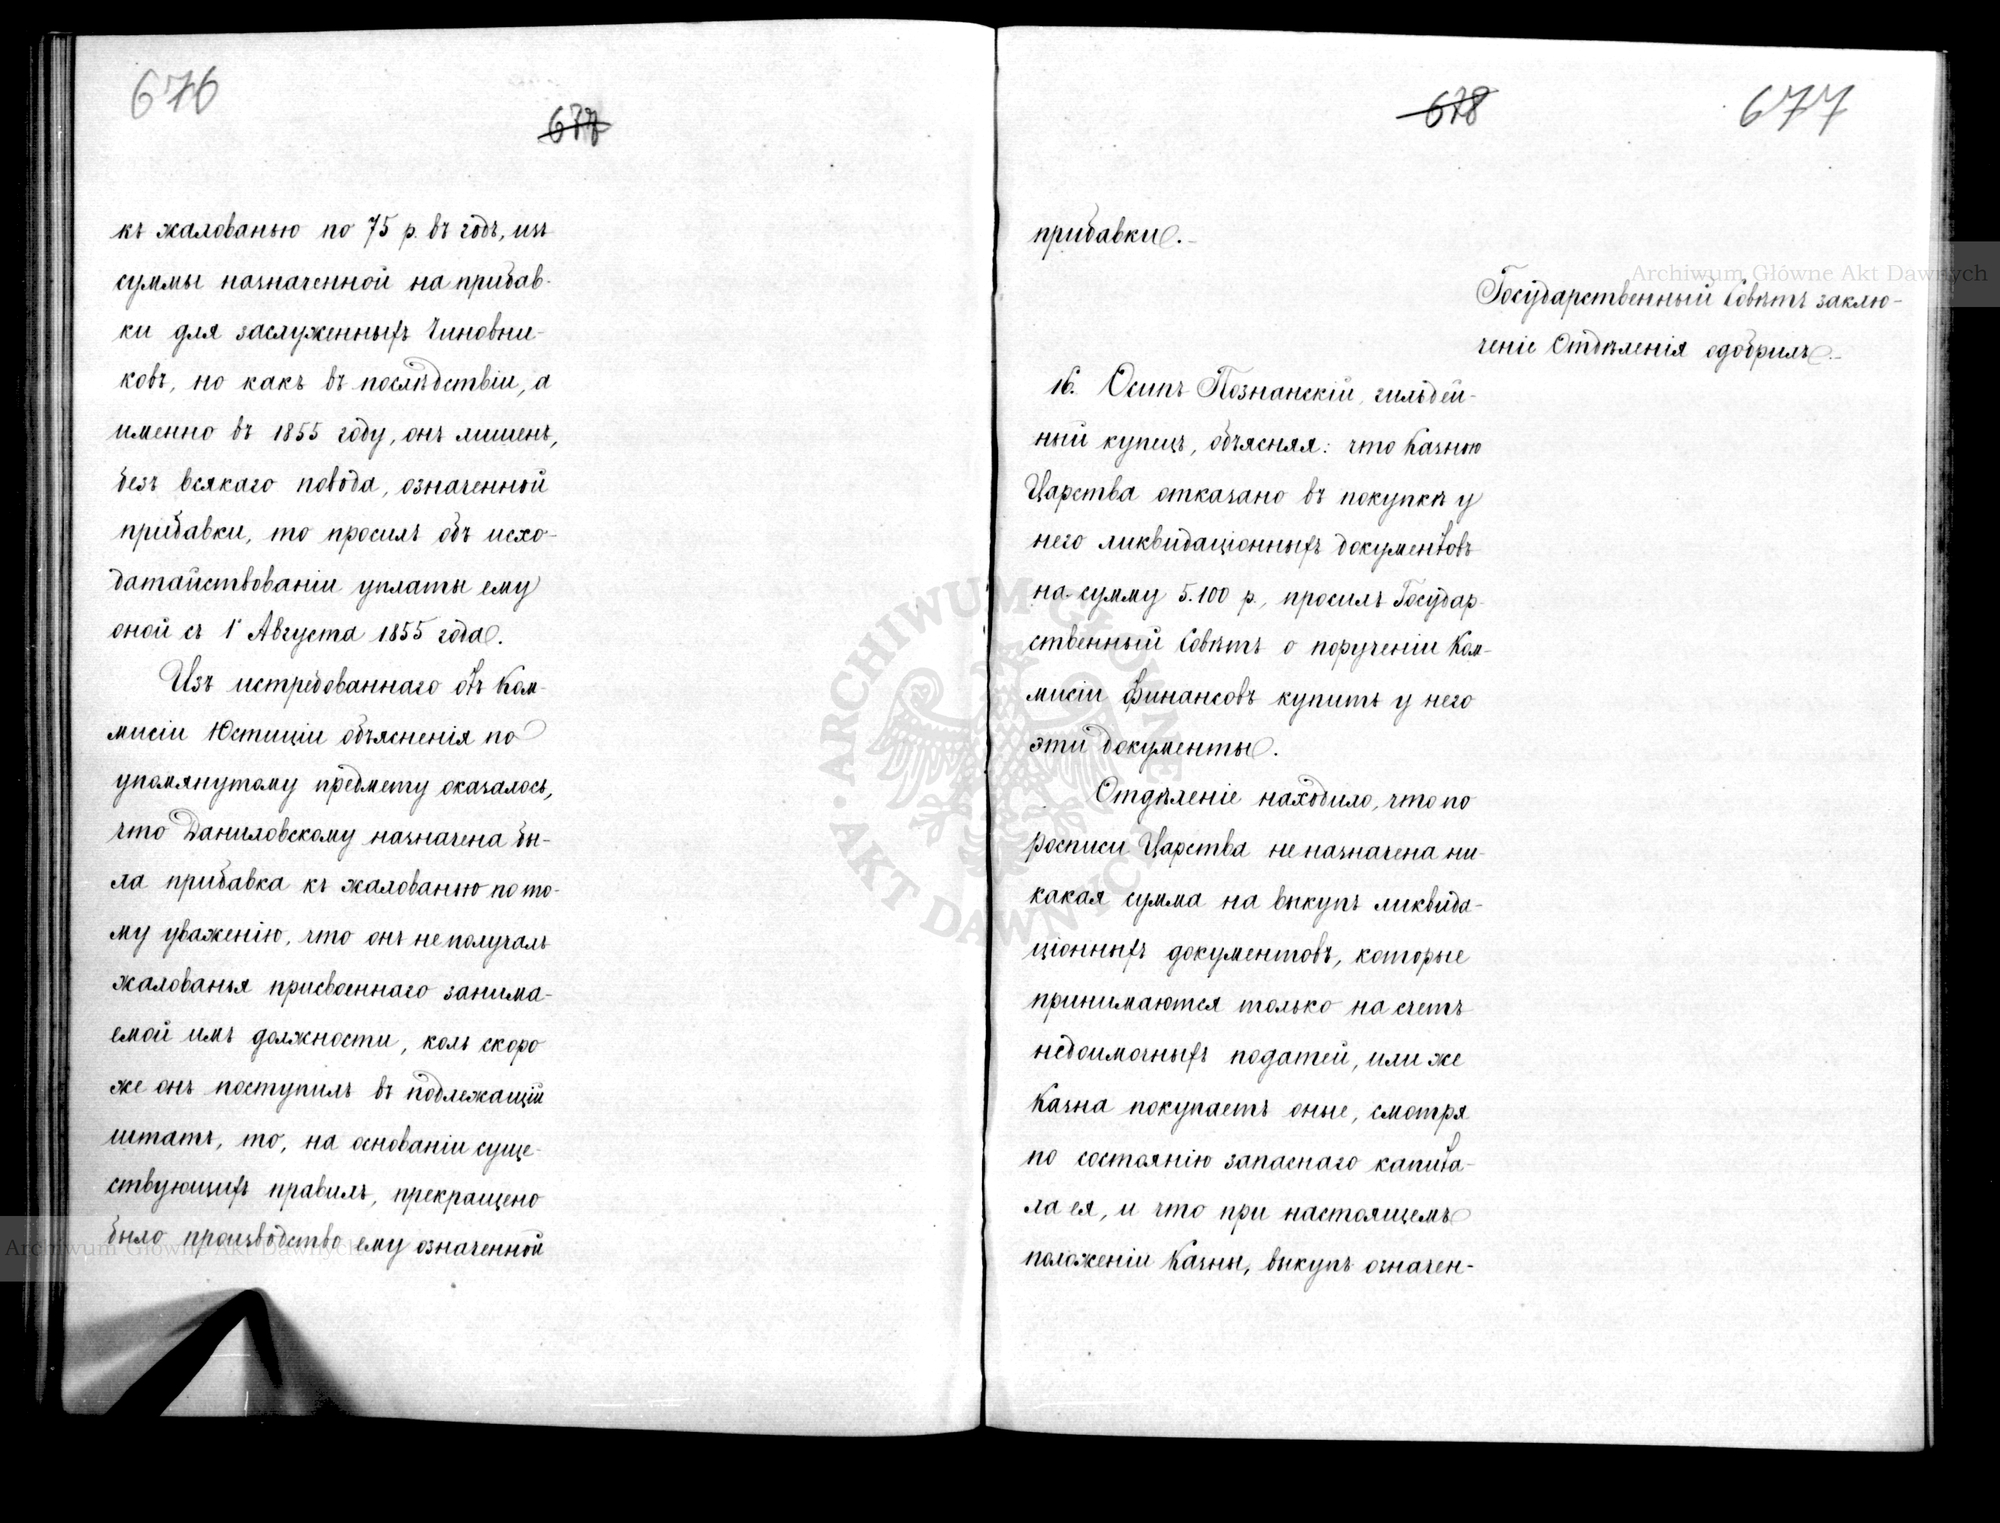 676
677
къ жалованью по 75 р. въ годъ, изъ
суммы назначенной на прибав-
ки для заслуженныхъ Чиновни-
ковъ, но какъ въ послѣдствіи, а
именно въ 1855 году, онъ лишенъ,
безъ всякаго повода, означенной
прибавки, то просилъ объ исхо-
датайствованіи уплаты ему
оной съ 1 Августа 1855 года.
Изъ истребованнаго отъ Ком-
мисіи Юстиціи объясненія по
упомянутому предмету оказалось,
что Даниловскому назначена бы-
ла прибавка къ жалованью по то-
му уваженію, что онъ не получалъ
жалованья присвоеннаго занима-
емой имъ должности, коль скоро
же онъ поступилъ въ подлежащій
штатъ, то, на основаніи суще-
ствующихъ правилъ, прекращено
было производство ему означенной
678
677
прибавки.
Государственный Совѣтъ заклю-
ченіе Отдѣленія одобрилъ.
16. Осипъ Познанскій, гильдей-
ный купецъ, объясняя: что Казною
Царства отказано въ покупкѣ у
него ликвидаціонныхъ документовъ
на сумму 5.100 р., просилъ Государ-
ственный Совѣтъ о порученіи Ком-
мисіи Финансовъ купить у него
эти документы.
Отдѣленіе находило, что по
росписи Царства не назначена ни-
какая сумма на выкупъ ликвида-
ціонныхъ документовъ, которые
принимаются только на счетъ
недоимочныхъ податей, или же
Казна покупаетъ оные, смотря
по состоянію запаснаго капита-
ла ея, и что при настоящемъ
положеніи Казны, выкупъ означен-
Archiwum Główne Akt Dawnych
Archiwum Główne Akt Dawnych
ARCHIWUM GŁÓWNE AKT DAWNYCH